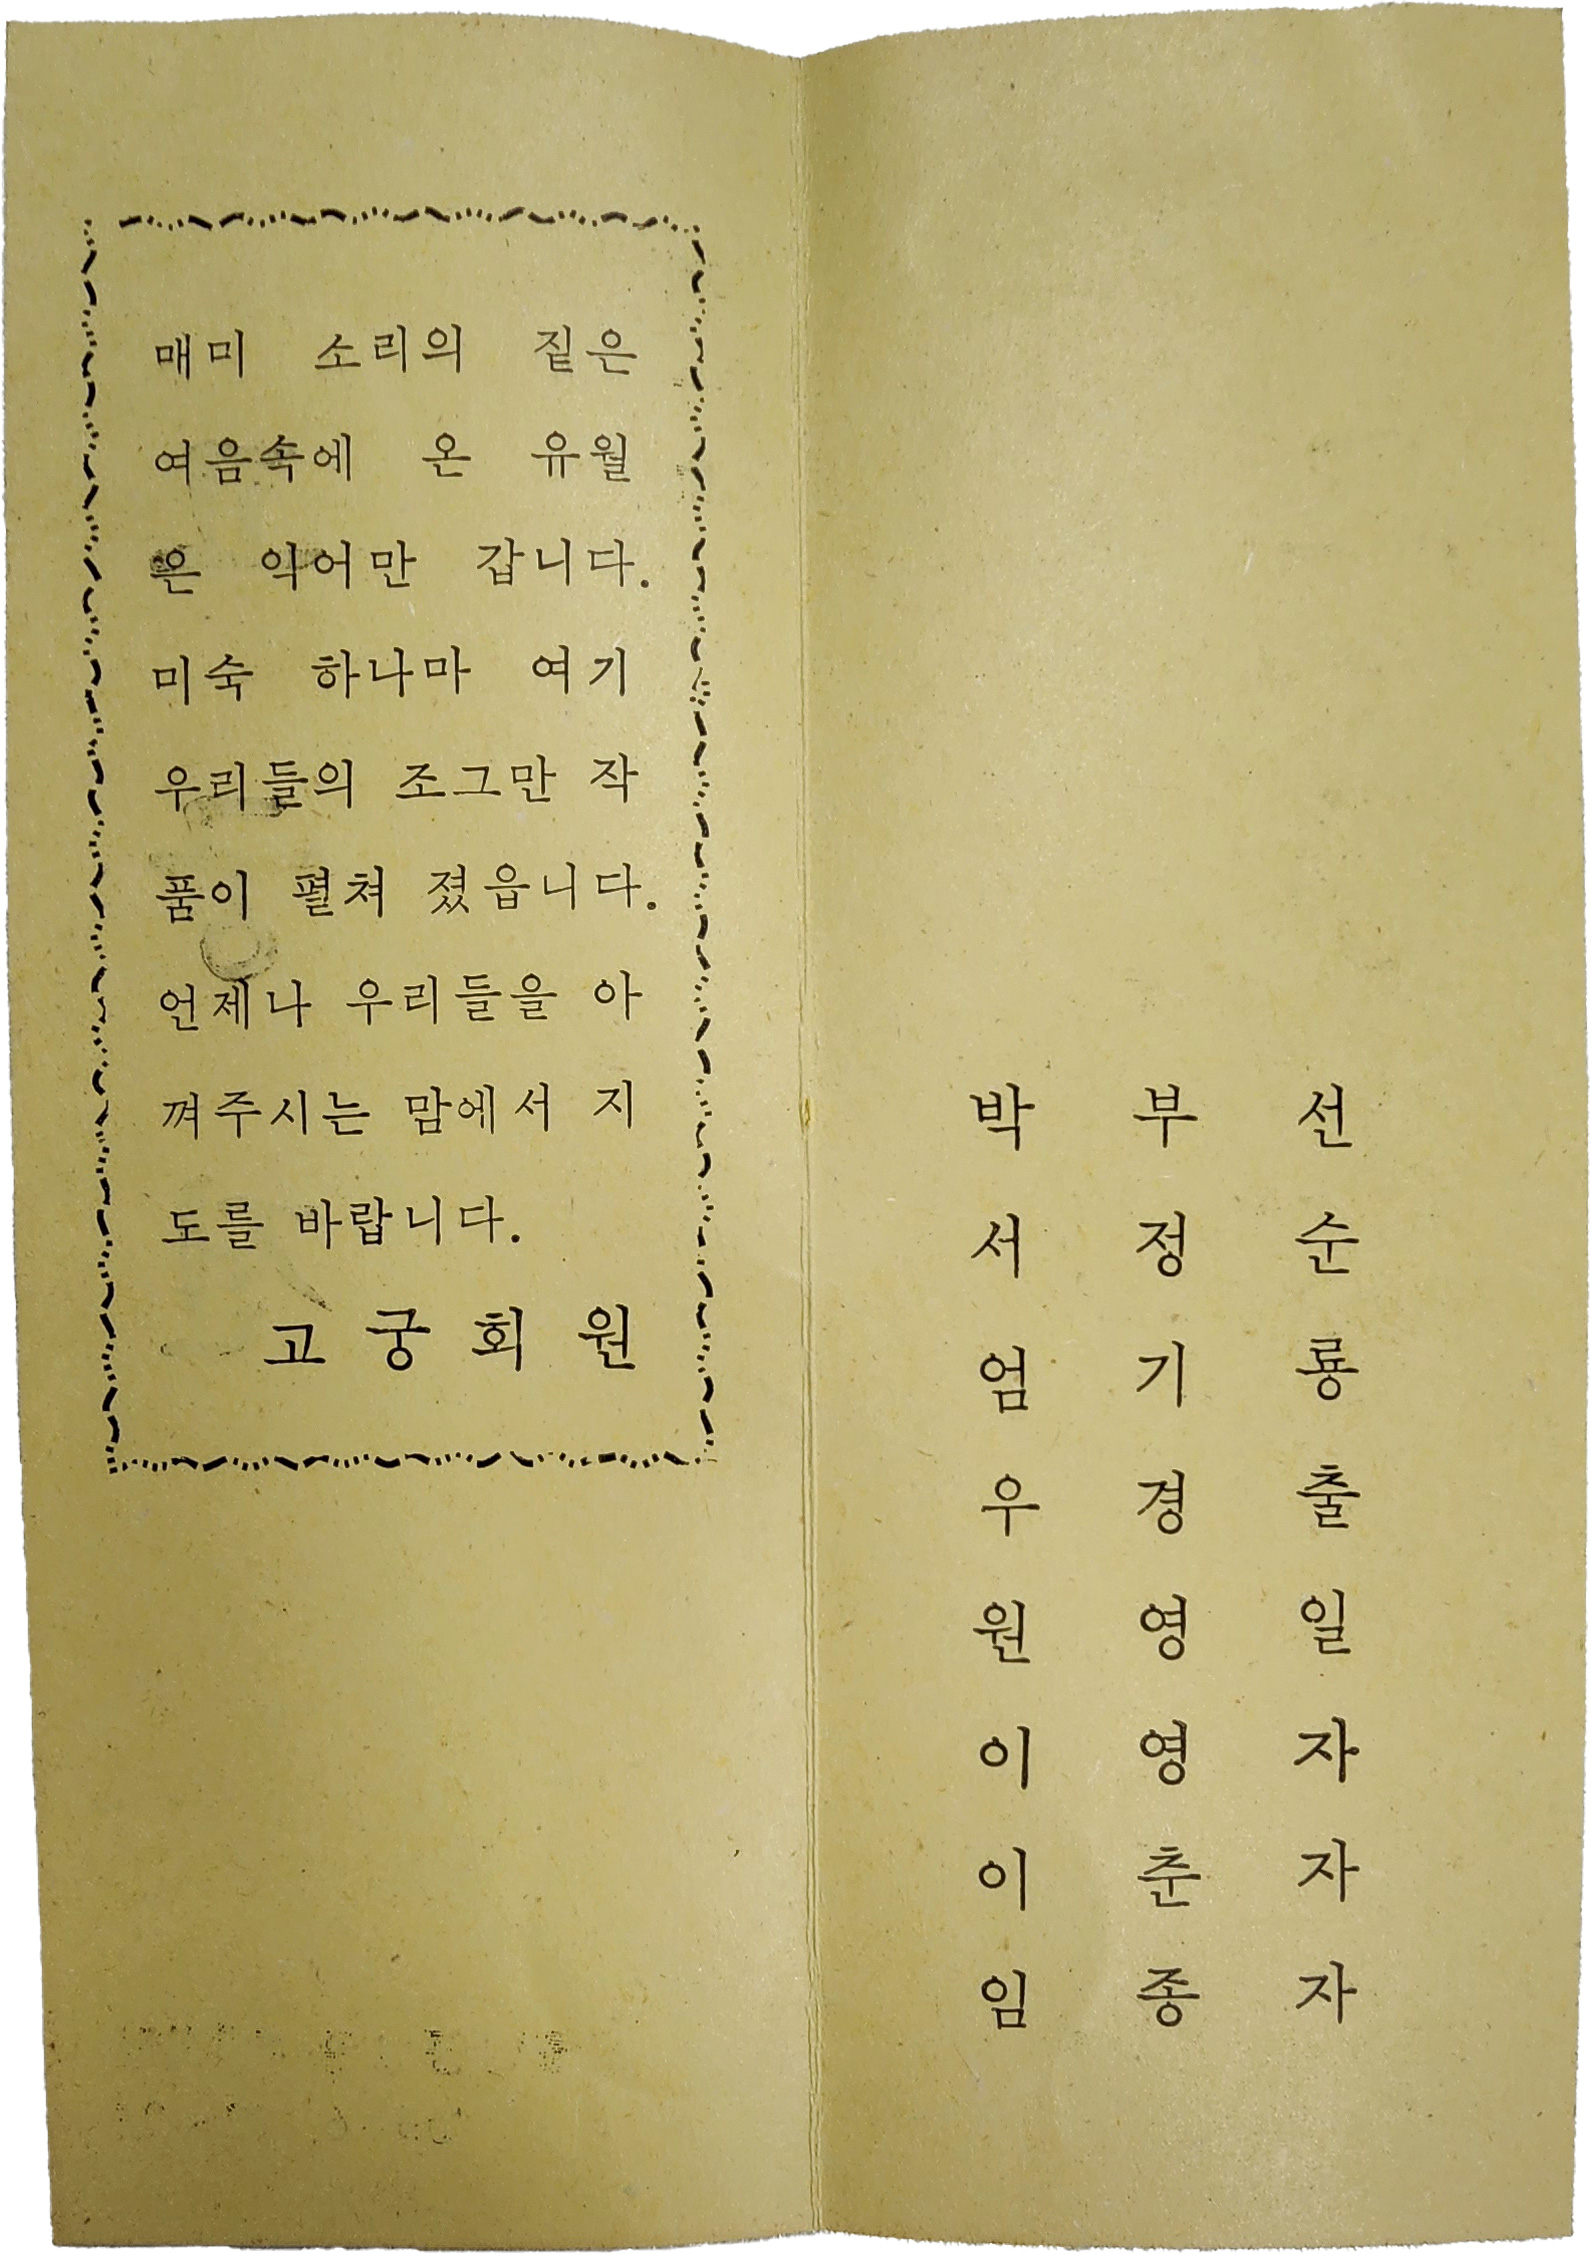 매미 소리의 짙은
여음속에 온 유월
은 익어만 갑니다.
미숙 하나마 여기
우리들의 조그만 작
품이 펼쳐 졌읍니다.
언제나 우리들을 아
껴주시는 맘에서 지
도를 바랍니다.
고궁회원
박 부 선
서 정 순
엄 기 룡
우 경 출
원 영 일
이 영 자
이 춘 자
임 종 자